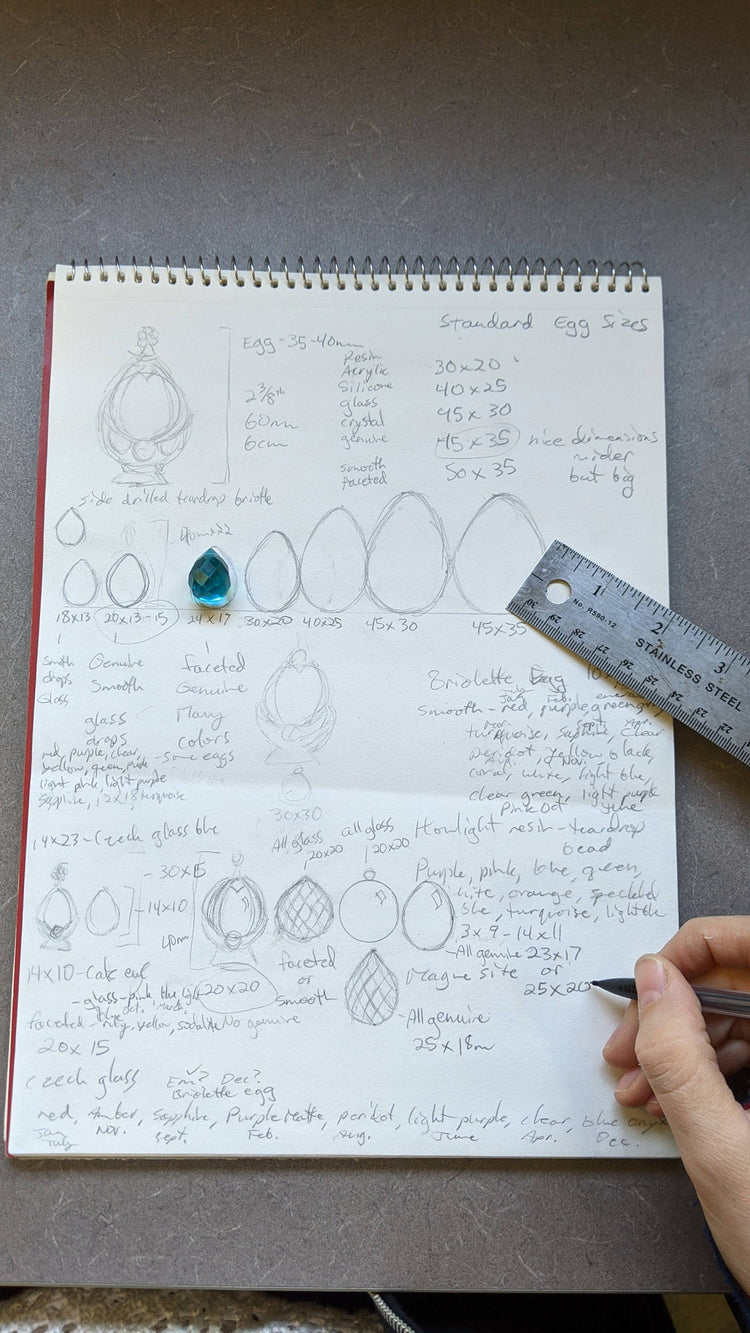 Standard Egg Sizes
Egg - 35-40mm
Resin
Acrylic
Silicone
glass
crystal
genuine
smooth
faceted
2 3/8th
60mm
6cm
30x20
40x25
45x30
45x35 nice dimensions
wider
but big
50x35
side drilled teardrop briolte
18x13 20x13-15 24x17 30x20 40x25 45x30 45x35
No. R590-12
1 2 3
STAINLESS STEEL
30 29 28 27 26 25 24 23
smoth
drops
Glass
Genuine
Smooth
glass
drops
faceted
Genuine
Many
colors
red, purple, clear,
light pink, light purple
sapphire, 12x18 turquoise
- some eggs
30x30
Briolette Egg
Jan. Feb.
smooth - red, purple, green
Sept. Apr.
turquoise, saphire, clear
peridot, yellow, black,
Nov.
coral, white, light blue,
clear green, light purple
Pink Oct June
14x23 - Czech glass blue
All glass
20x20
all glass
20x20
Howlight resin - teardrop
bead
Purple, pink, blue, green,
white, orange, speckled
blue, turquoise, light
13x9 - 14x11
- 30x15
- 14x10
40mm
20x20
faceted
or
smooth
No genuine
- All genuine 23x17
Magnesite or
25x20
- All genuine
25x18m
14x10 -
- glass - pink, blue, light
Oct. March
faceted - ruby, yellow, sodalite
20x15
Czech glass
Em? Dec?
Briolette egg
red, amber, sapphire, Purple Matte, peridot, light purple, clear, blue onyx
Jan. Nov. Sept. Feb. Aug. June Apr. Dec.
July